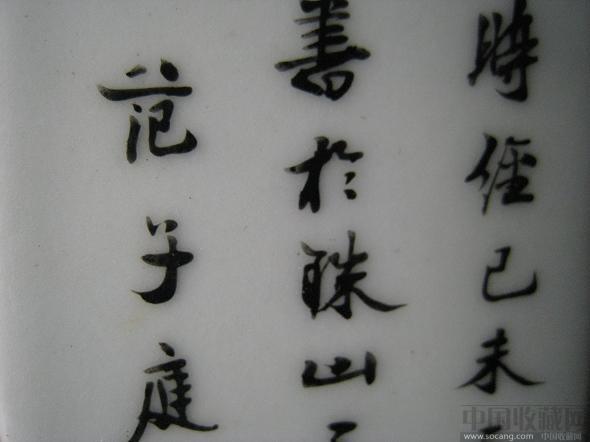 時經己未
書於珠山
范子庭
中国收藏网
www.socang.com 中国收藏网